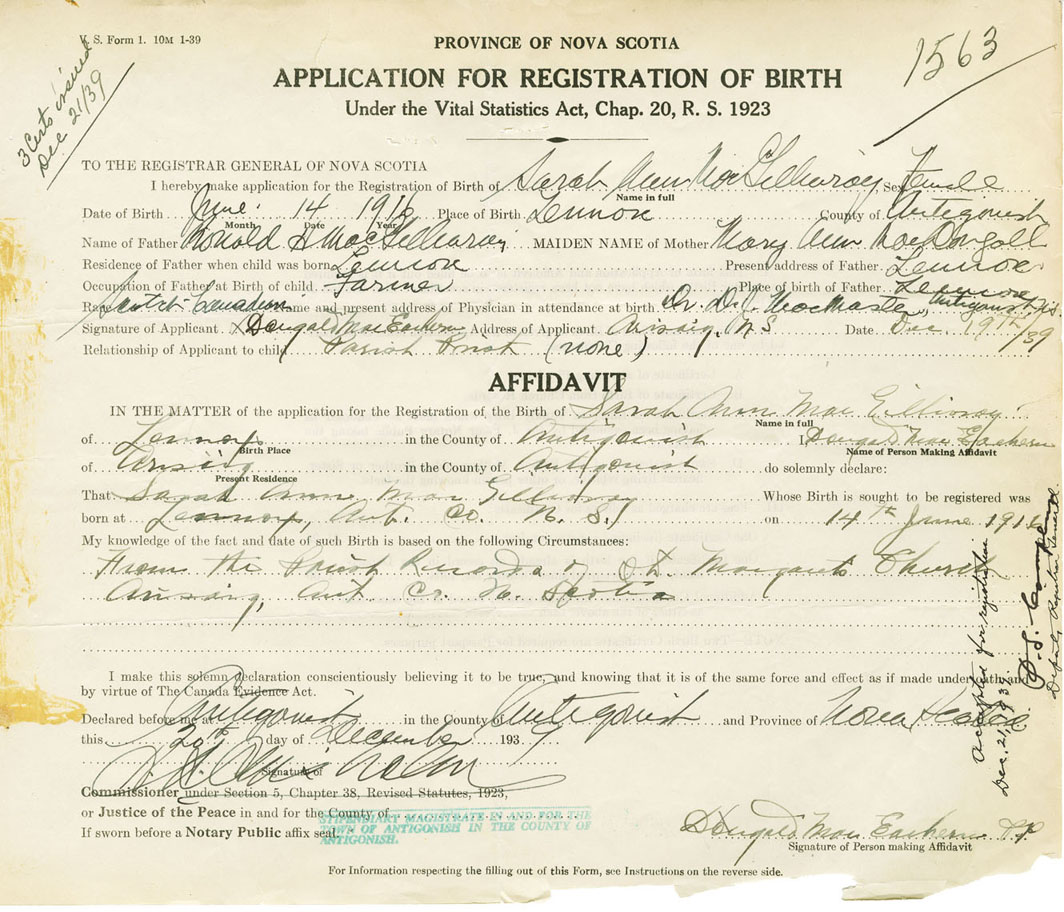 V. S. Form 1. 10M 1-39
3 Certs issued
Dec 21/39
1563
PROVINCE OF NOVA SCOTIA
APPLICATION FOR REGISTRATION OF BIRTH
Under the Vital Statistics Act, Chap. 20, R. S. 1923
TO THE REGISTRAR GENERAL OF NOVA SCOTIA
I hereby make application for the Registration of Birth of Sarah Ann MacGillivray Sex Female
Name in full
Date of Birth June 14 1916 Place of Birth Lennox County of Antigonish
Month Date Year
Name of Father Ronald MacGillivray MAIDEN NAME of Mother Mary Ann MacDougall
Residence of Father when child was born Lennox Present address of Father Lennox
Occupation of Father at Birth of child Farmer Place of birth of Father Lennox
Scotch Canadian Name and present address of Physician in attendance at birth Dr. MacMaster, Antigonish N.S.
Signature of Applicant x Dougald MacEachern Address of Applicant Arisaig, N S Date Dec. 19th/39
Relationship of Applicant to child Parish Priest (none)
AFFIDAVIT
IN THE MATTER of the application for the Registration of the Birth of Sarah Ann MacGillivray
Name in full
of Lennox in the County of Antigonish I Dougald MacEachern
Birth Place Name of Person Making Affidavit
of Arisaig in the County of Antigonish do solemnly declare:
Present Residence
That Sarah Ann MacGillivray Whose Birth is sought to be registered was
born at Lennox, Ant. Co. N. S. on 14th June 1916
My knowledge of the fact and date of such Birth is based on the following Circumstances:
From the Parish Records of St. Margarets Church
Arisaig, Ant. Co. N. Scotia
I make this solemn declaration conscientiously believing it to be true, and knowing that it is of the same force and effect as if made under oath and
by virtue of The Canada Evidence Act.
Declared before me at Antigonish in the County of Antigonish and Province of Nova Scotia
this 20th day of December 1939
Signature of
Commissioner under Section 5, Chapter 38, Revised Statutes, 1923,
or Justice of the Peace in and for the County of
If sworn before a Notary Public affix seal.
STIPENDIARY MAGISTRATE IN AND FOR THE
TOWN OF ANTIGONISH IN THE COUNTY OF
ANTIGONISH.
Dougald MacEachern P.P.
Signature of Person making Affidavit
For Information respecting the filling out of this Form, see Instructions on the reverse side.
Accepted for registration
Dec. 21, 1939
Deputy Registrar General